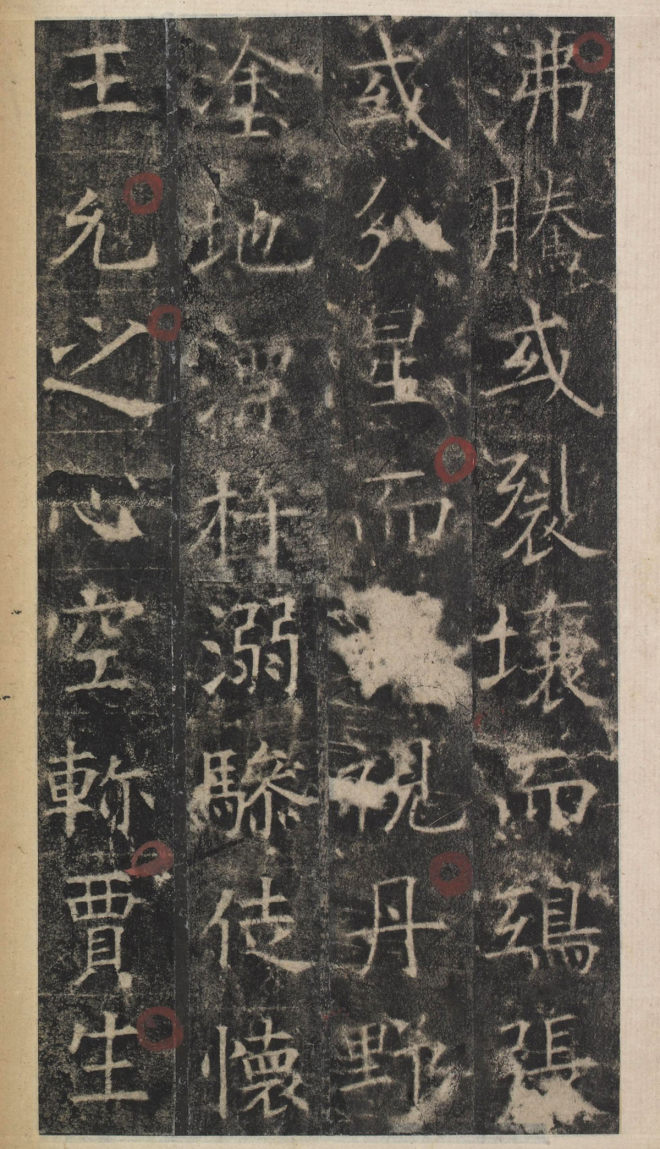 沸騰或裂壤而鴟張
或分星而視丹野
塗地漂杵溺驂徒懷
王允之心空軫賈生